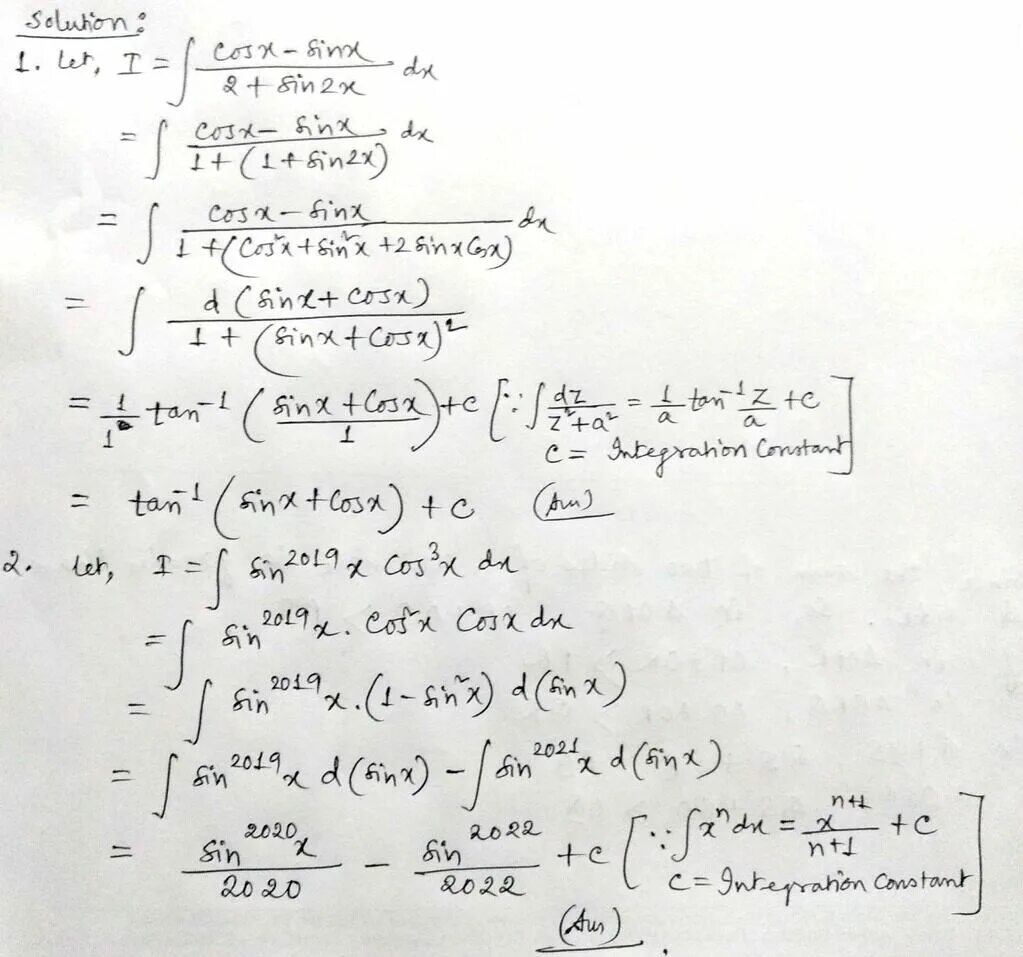 Solution:
1. Let, I = ∫ (cosx - sinx)/(2 + sin2x) dx
= ∫ (cosx - sinx)/(1 + (1 + sin2x)) dx
= ∫ (cosx - sinx)/(1 + (cos²x + sin²x + 2 sinx cosx)) dx
= ∫ d(sinx + cosx)/(1 + (sinx + cosx)²)
= 1/1 tan⁻¹ ((sinx + cosx)/1) + c [∵ ∫ dz/(z² + a²) = 1/a tan⁻¹ z/a + c
c = Integration Constant]
= tan⁻¹ (sinx + cosx) + c (Ans)
2. Let, I = ∫ sin²⁰¹⁹x cos³x dx
= ∫ sin²⁰¹⁹x. cos²x cosx dx
= ∫ sin²⁰¹⁹x. (1 - sin²x) d(sinx)
= ∫ sin²⁰¹⁹x d(sinx) - ∫ sin²⁰²¹x d(sinx)
= sin²⁰²⁰x/2020 - sin²⁰²²/2022 + c [∵ ∫ xⁿ dx = xⁿ⁺¹/(n+1) + c
c = Integration Constant]
(Ans).